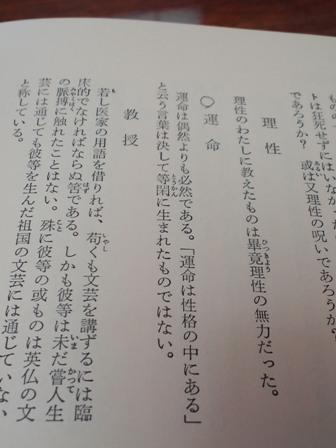 もの。
トは狂死せずにはいなかった
であろうか？　或は又理性の呪いであろうか？
理性
理性のわたしに教えたものは畢竟理性の無力だった。
○運命
運命は偶然よりも必然である。「運命は性格の中にある」
と云う言葉は決して等閑に生まれたものではない。
教授
若し医家の用語を借りれば、苟くも文芸を講ずるには臨
床的でなければならぬ筈である。しかも彼等は未だ嘗人生
の脈搏に触れたことはない。殊に彼等の或ものは英仏の文
芸には通じても彼等を生んだ祖国の文芸には通じていない
と称している。